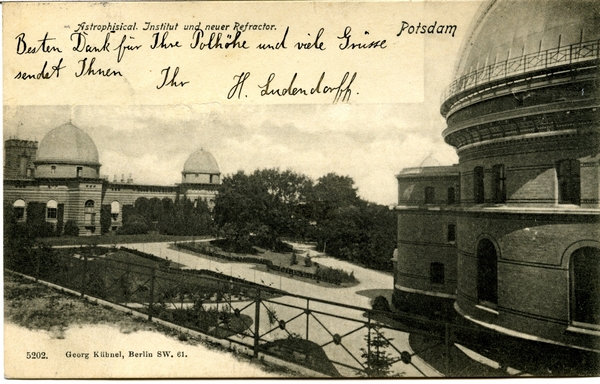 Astrophisical. Institut und neuer Refractor.
Potsdam
Besten Dank für Ihre Polhöhe und viele Grüsse
sendet Ihnen Ihr H. Ludendorff.
5202. Georg Kühnel, Berlin SW. 61.